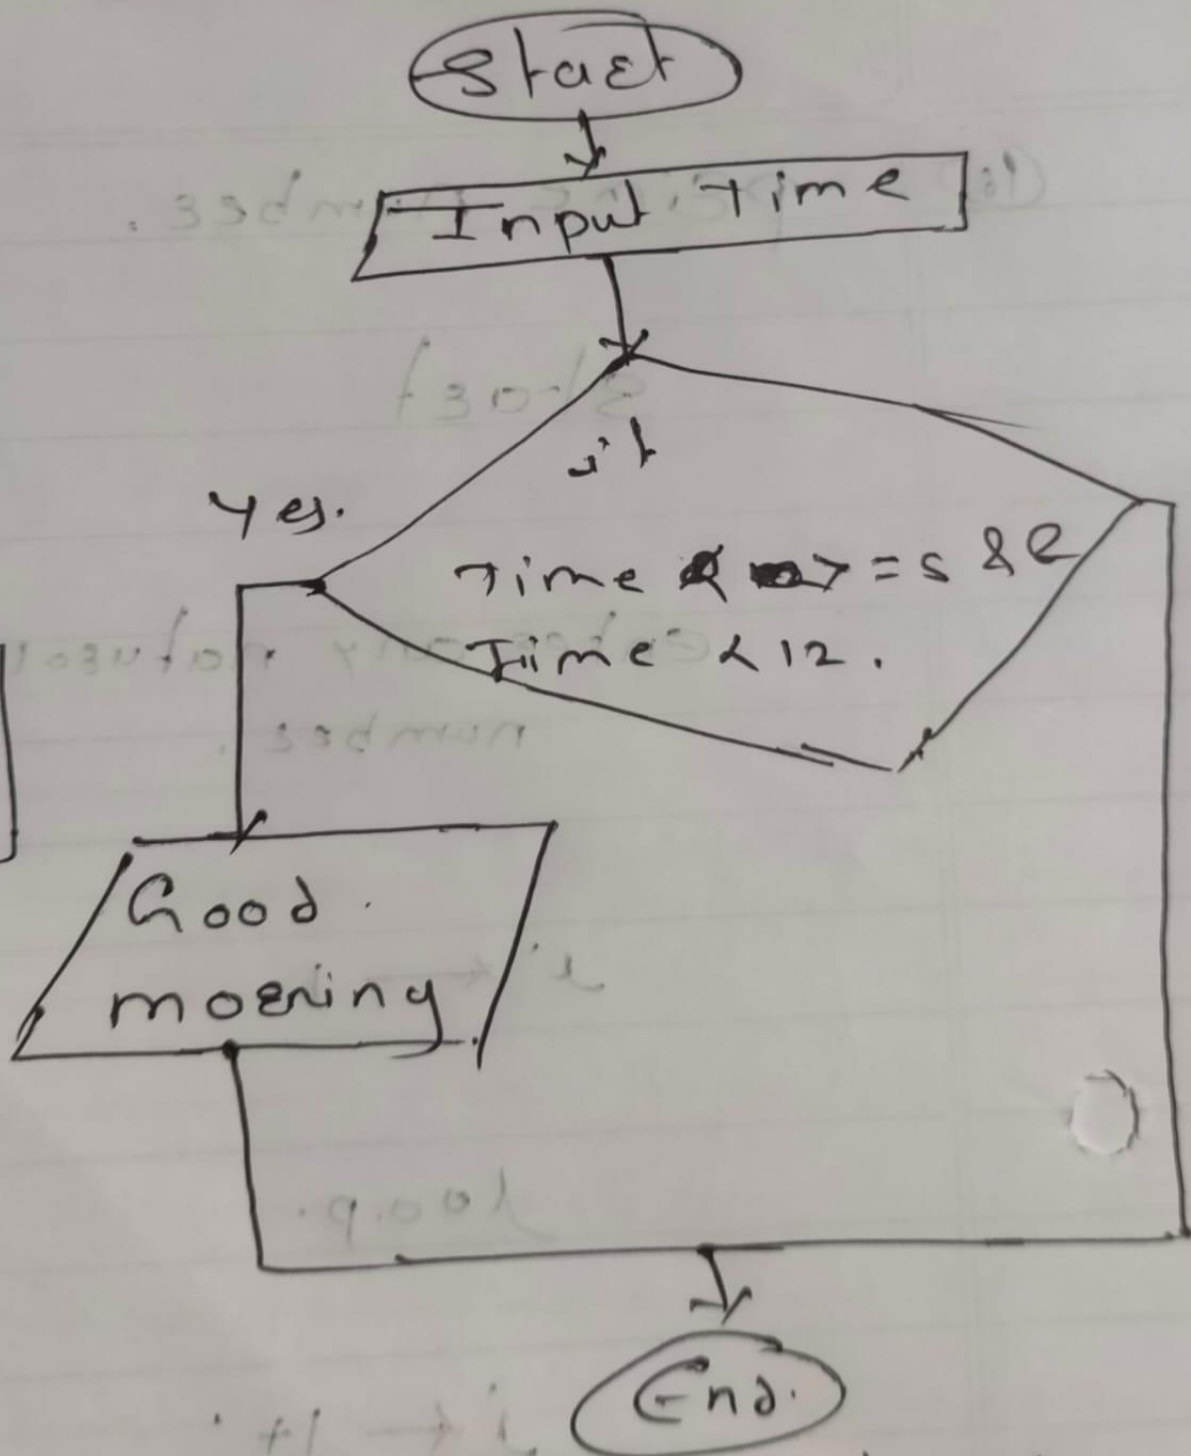 Start
Input Time
if
Yes.
Time >= 5 &&
Time < 12.
Good
morning
End.